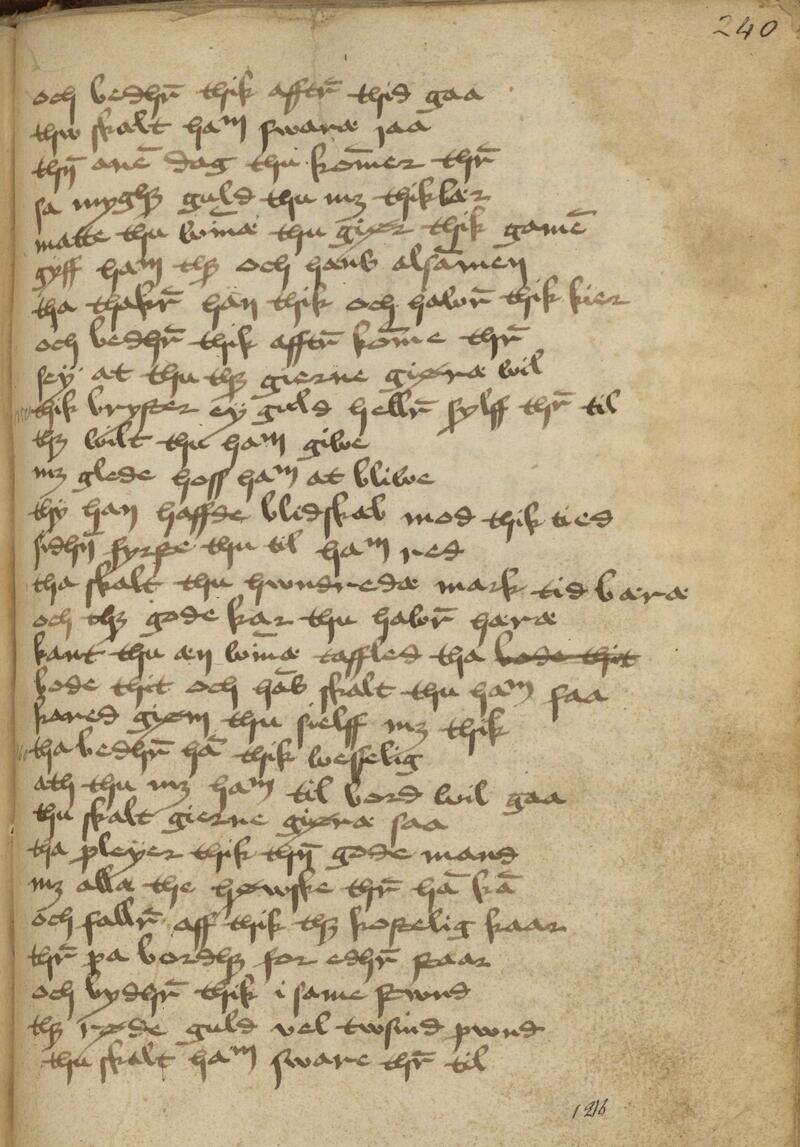 240
och bedhr̄ thik afftr̄ thid gaa
thw skalt haᵐ swaræ jaa
thn̄ anē dag thu kom̄er thr̄
sa myghꝫ guld thu mꝫ thik bær
matte thu win̄æ thu giør thik gamē
gyff haᵐ thꝫ och hanb alsāmen
tha thakr̄ han thik och habr̄ thik kier
och bedhr̄ thik afftr̄ kom̄e thr̄
sey at thu thꝫ gierne giøræ wil
thik bryster ey guld hellr̄ sylff thr̄ til
thꝫ wilt thu haᵐ giwe
mꝫ glede hoff haᵐ at bliwe
thy han haffde blidskab mod thik tied
sidhn̄ fyrste thu til haᵐ red
tha skalt thu hwndredæ mark tid bæræ
och thꝫ gode kar thu habr̄ hæræ
kant thu æn win̄æ taffled tha bode thit
bode thit och hāb skalt thu haᵐ faa
kared giøm thu sielff mꝫ thik
tha bedhr̄ hā thik weffelig
ath thu mꝫ haᵐ til bord wil gaa
thu skalt gierne giøræ saa
tha pleyer thik thn̄ gode mand
mꝫ alla the høwske thr̄ hā kā
och fallr̄ aff thik thꝫ kostelig kaar
thr̄ pa bordhꝫ for edhr̄ staar
och bydhr̄ thik i same stwnd
thꝫ røde guld vel twsind pwnd
thu skalt haᵐ sware thr̄ til